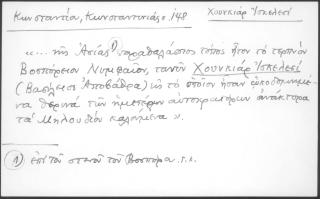 Κωνσταντία, Κωνσταντινιάς, 148
Χουνκιάρ Ἰσκελεσί
«... τῆς Ἀσίας 1) παραθαλάσσιος τόπος ἦτον τὸ τερπνὸν
Βοσπόρειον Νυμφαῖον, τανῦν Χουνκιάρ Ἰσκελεσί
(Βασιλικὴ Ἀποβάθρα) εἰς τὸ ὁποῖον ἦσαν ᾠκοδομημέ-
να θερινὰ τῶν ἡμετέρων αὐτοκρατόρων ἀνάκτορα
τὰ Μηλουδίου καλούμενα».
1) ἐπὶ τοῦ στενοῦ τοῦ Βοσπόρου.